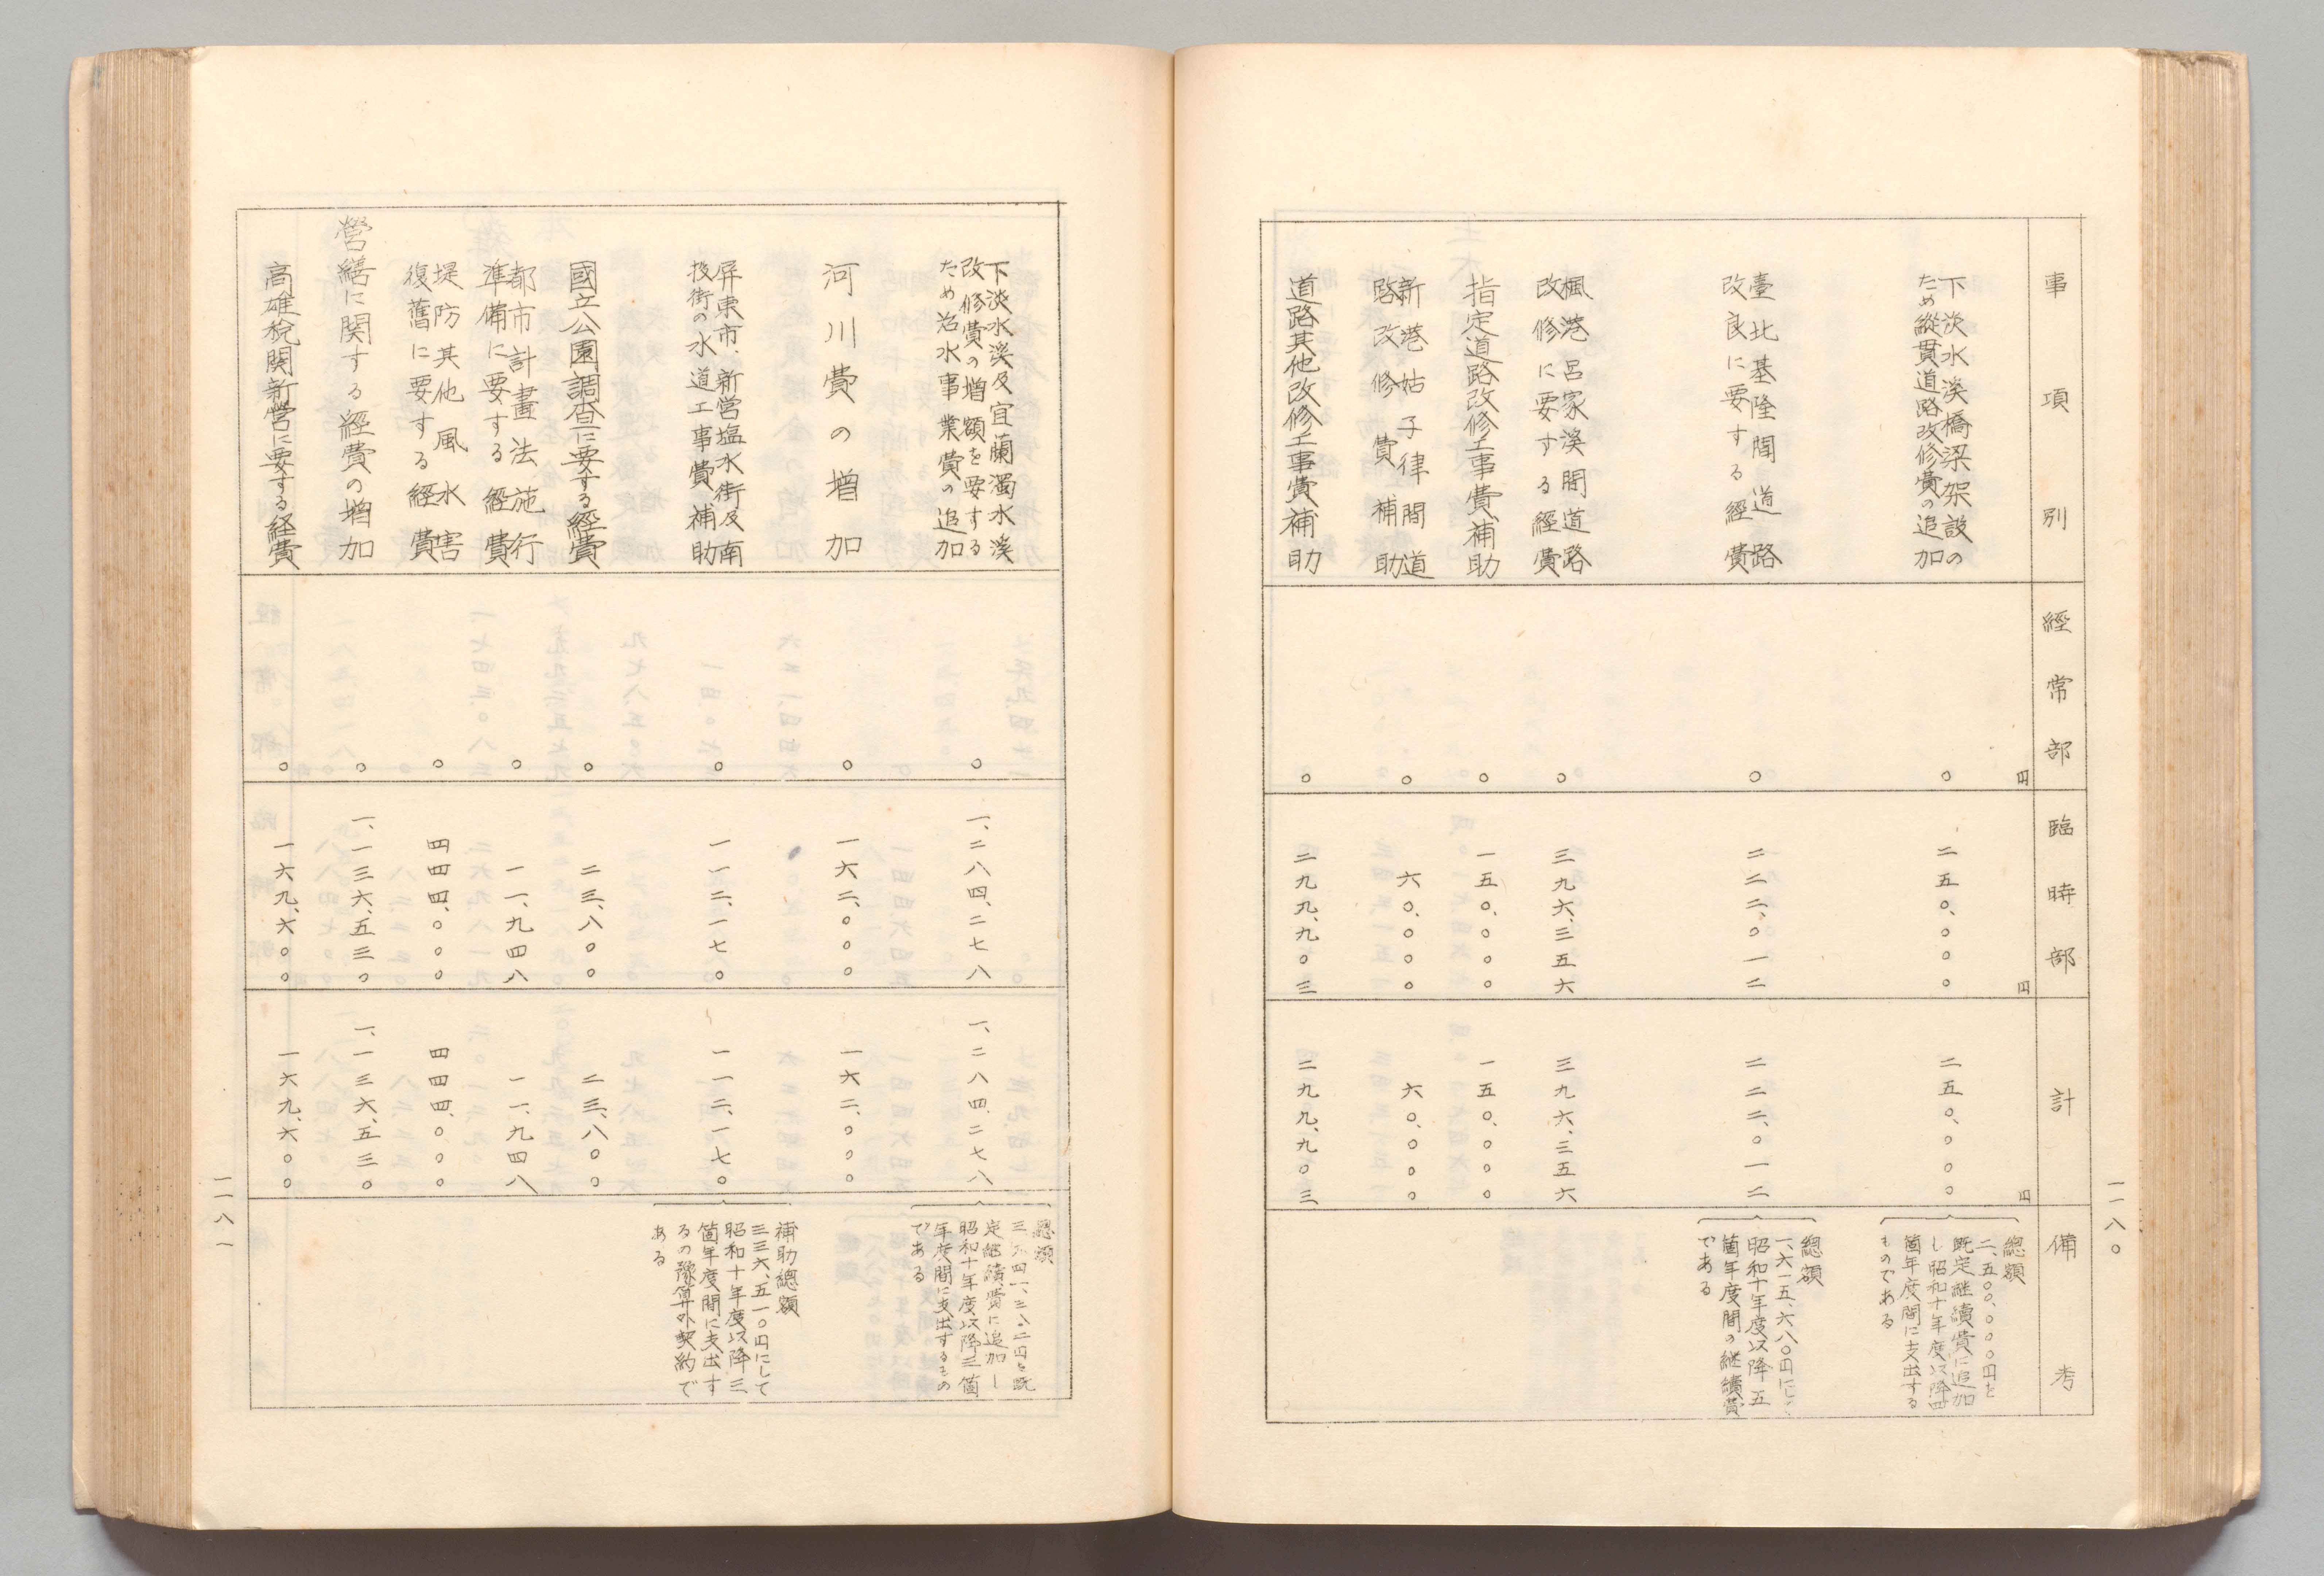 一一八〇
事項別
經常部
臨時部
計
備考
円
円
円
下淡水溪橋梁架設の
ため縱貫道路改修費の追加
〇
二五〇、〇〇〇
二五〇、〇〇〇
總額
二、五〇〇、〇〇〇円を
既定継續費に追加
し昭和十年度以降四
箇年度間に支出する
ものである
臺北基隆間道路
改良に要する經費
〇
二二二、〇一二
二二二、〇一二
總額
一、六一五、六八〇円にして
昭和十年度以降五
箇年度間の継續費
である
楓港呂家溪間道路
改修に要する經費
〇
三九六、三五六
三九六、三五六
指定道路改修工事費補助
〇
一五〇、〇〇〇
一五〇、〇〇〇
新港姑子律間道
路改修費補助
〇
六〇、〇〇〇
六〇、〇〇〇
道路其他改修工事費補助
〇
二九九、九〇三
二九九、九〇三
下淡水溪及宜蘭濁水溪
改修費の増額を要する
ため治水事業費の追加
〇
一、二八四、二七八
一、二八四、二七八
總額
円を既
定継續費に追加し
昭和十年度以降三箇
年度間に支出するもの
である
河川費の増加
〇
一六二、〇〇〇
一六二、〇〇〇
屏東市、新営塩水街及南
投街の水道工事費補助
〇
一一二、一七〇
一一二、一七〇
補助總額
三三六、五一〇円にして
昭和十年度以降三
箇年度間に支出す
るの豫算外契約で
ある
國立公園調査に要する經費
〇
二三、八〇〇
二三、八〇〇
都市計畫法施行
準備に要する經費
〇
一一、九四八
一一、九四八
堤防其他風水害
復舊に要する經費
〇
四四四、〇〇〇
四四四、〇〇〇
営繕に関する經費の増加
〇
一、一三六、五三〇
一、一三六、五三〇
高雄税関新営に要する経費
〇
一六九、六〇〇
一六九、六〇〇
一一八一